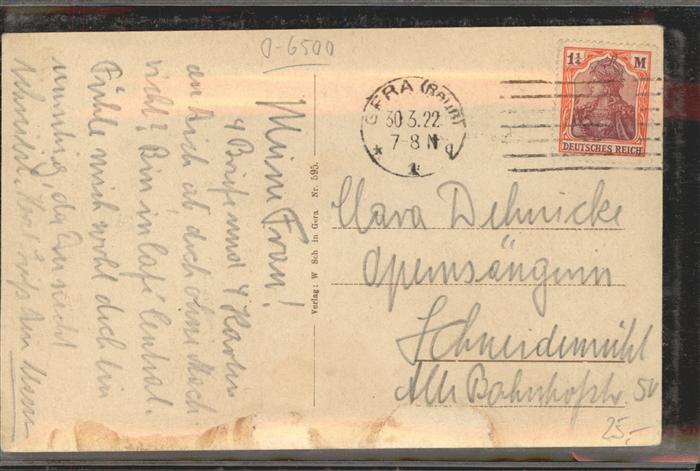 0-6500
Meine Frau!
4 Briefe und 4 Karten
an Dich ab doch ohne
nicht? Bin in Café Central.
Fühle mich wohl doch bin
unruhig, da Du nicht
schreibst.
Verlag: W Sch in Gera. Nr. 595.
GERA (REUß)
30.3.22
7-8 N
1
1¼ M
DEUTSCHES REICH
Clara Dehnicke
Opernsängerin
Schneidemühl
Alte Bahnhofstr. 50
25,-